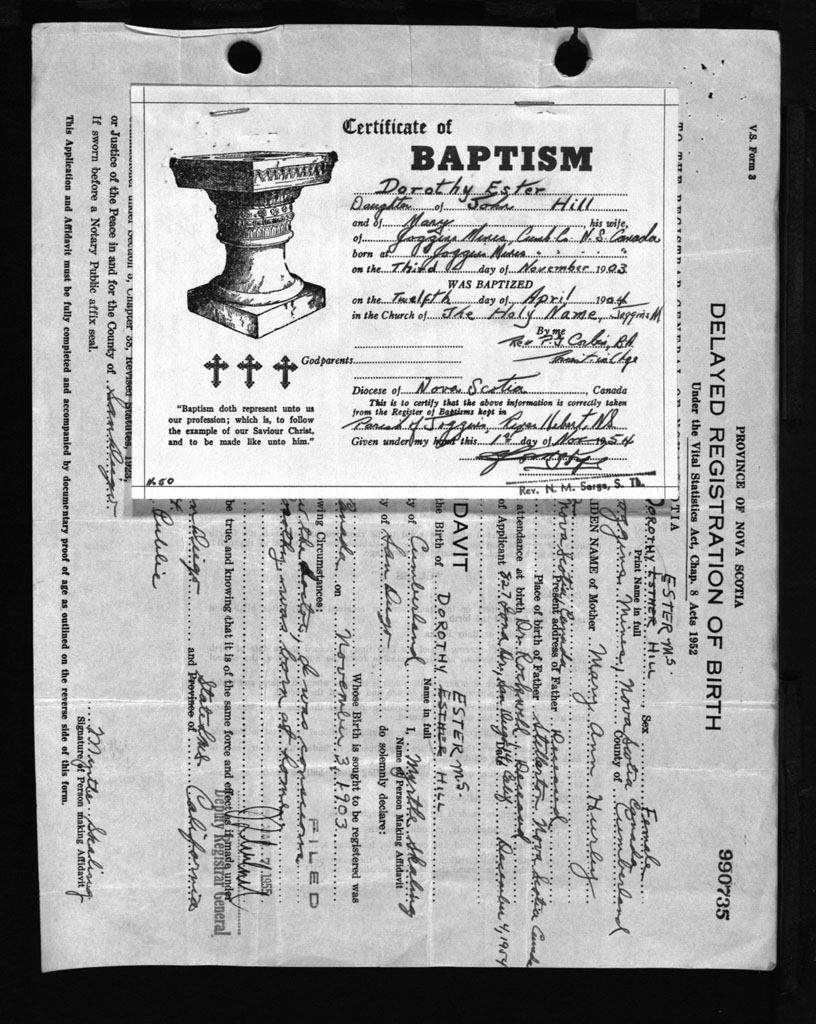 Certificate of
BAPTISM
Dorothy Ester
Daughter of John Hill
and of Mary his wife,
of Joggins Mines, Cumb. Co. N.S. Canada
born at Joggins Mines " " "
on the Third day of November 1903
WAS BAPTIZED
on the Twelfth day of April 1904
in the Church of The Holy Name, Joggins M
By me
Rev P.J.
Godparents
Diocese of Nova Scotia, Canada
This is to certify that the above information is correctly taken
from the Register of Baptisms kept in
Parish of Joggins, River Hebert, NS
Given under my hand this 1st day of Nov 1954
Rev. N. M. Sorge, S. Th.
"Baptism doth represent unto us
our profession; which is, to follow
the example of our Saviour Christ,
and to be made like unto him."
V.S. Form 3
PROVINCE OF NOVA SCOTIA
990735
DELAYED REGISTRATION OF BIRTH
Under the Vital Statistics Act, Chap. 8 Acts 1952
TO THE REGISTRAR GENERAL OF
OTIA
ESTER MS
DOROTHY ESTHER HILL Sex Female
Print Name in full
Joggins Mines, Nova Scotia Canada County of Cumberland
IDEN NAME of Mother Mary Ann Hurley
Present address of Father Deceased
Nova Scotia Canada
Place of birth of Father Stellarton Nova Scotia
attendance at birth Dr. Rockwell, Deceased
of Applicant San Diego 14, Calif Date December 4, 1954
DAVIT
ESTER MS.
the Birth of DOROTHY ESTHER HILL
Name in full
ty of Cumberland I, Myrtle Skaling
Name of Person Making Affidavit
y of San Diego do solemnly declare:
Whose Birth is sought to be registered was
Canada on November 3, 1903
wing Circumstances:
the doctor,
was born at home
FILED
1955
Deputy Registrar General
be true, and knowing that it is of the same force and effect as if made under
San Diego and Province of State of California
Public
Myrtle Skaling
Signature of Person making Affidavit
Commissioner under Section 8, Chapter 38, Revised Statutes, 1923,
or Justice of the Peace in and for the County of San Diego.
If sworn before a Notary Public affix seal.
This Application and Affidavit must be fully completed and accompanied by documentary proof of age as outlined on the reverse side of this form.